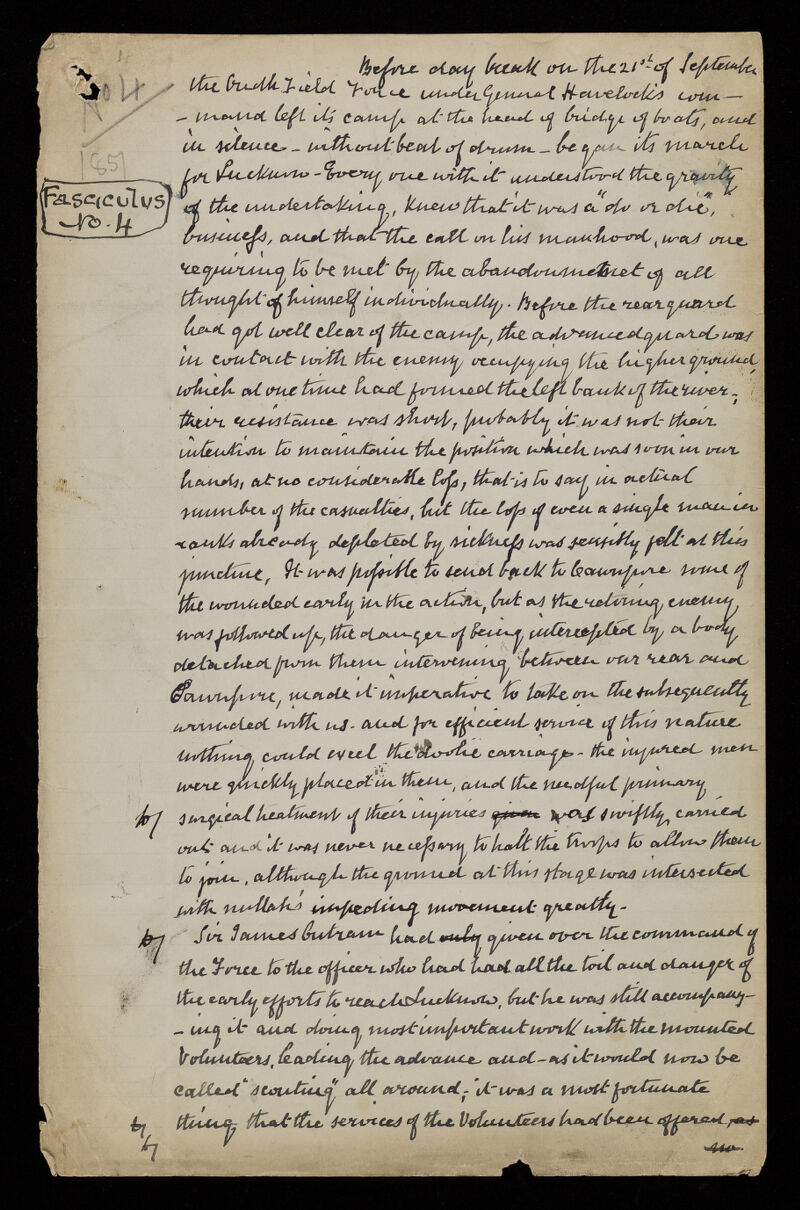 4
No 4
1857
Fasciculus
No. 4
Before day break on the 21st of September
the Oudh Field Force under General Havelock's com-
- mand left its camp at the head of bridge of boats, and
in silence - without beat of drum - began its march
for Lucknow - Every one with it understood the gravity
of the undertaking, knew that it was a "do or die",
business, and that the call on his manhood, was one
requiring to be met by the abandonment of all
thought of himself individually. Before the rearguard
had got well clear of the camp, the advanced guard was
in contact with the enemy occupying the higher ground,
which at one time had formed the left bank of the river -,
their resistance was short, probably it was not their
intention to maintain the position which was soon in our
hands, at no considerable loss, that is to say in actual
number of the casualties, but the loss of even a single man in
ranks already depleted by sickness was sensibly felt at this
juncture, It was possible to send back to Cawnpore some of
the wounded early in the action, but as the retiring enemy
was followed up, the danger of being intercepted by a body
detached from them intervening between our rear and
Cawnpore, made it imperative to take on the subsequently
wounded with us - and for efficient service of this nature
nothing could excel the doolie carriage - the injured men
were quickly placed in them, and the needful primary
surgical treatment of their injuries given was swiftly carried
out and it was never necessary to halt the troops to allow them
to join, although the ground at this stage was intersected
with nullah's impeding movement greatly -
Sir James Outram had only given over the command of
the Force to the officer who had had all the toil and danger of
the early efforts to reach Lucknow, but he was still accompany-
- ing it and doing most important work with the mounted
Volunteers, leading the advance and - as it would now be
called "scouting" all around; it was a most fortunate
thing that the services of the Volunteers had been offered as
no